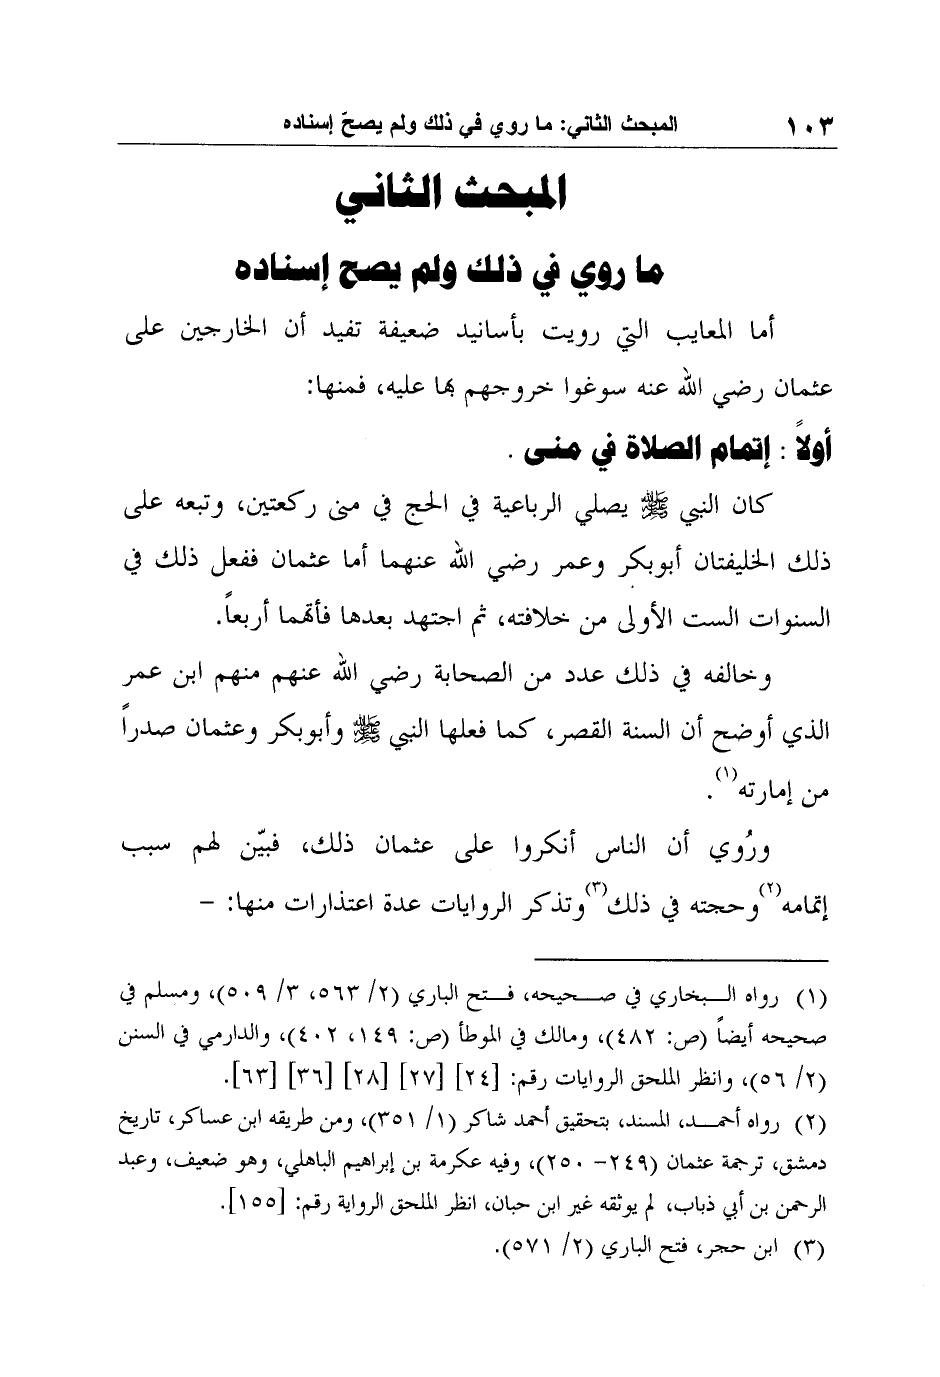 ١٠٣ المبحث الثاني: ما روي في ذلك ولم يصحّ إسناده
المبحث الثاني
ما روي في ذلك ولم يصح إسناده
أما المعايب التي رويت بأسانيد ضعيفة تفيد أن الخارجين على
عثمان رضي الله عنه سوغوا خروجهم بها عليه، فمنها:
أولاً : إتمام الصلاة في منى .
كان النبي ﷺ يصلي الرباعية في الحج في منى ركعتين، وتبعه على
ذلك الخليفتان أبوبكر وعمر رضي الله عنهما أما عثمان ففعل ذلك في
السنوات الست الأولى من خلافته، ثم اجتهد بعدها فأتمهما أربعاً.
وخالفه في ذلك عدد من الصحابة رضي الله عنهم منهم ابن عمر
الذي أوضح أن السنة القصر، كما فعلها النبي ﷺ وأبوبكر وعثمان صدراً
من إمارته(١).
ورُوي أن الناس أنكروا على عثمان ذلك، فبيّن لهم سبب
إتمامه(٢) وحجته في ذلك(٣) وتذكر الروايات عدة اعتذارات منها: –
(١) رواه الـبخاري في صـحيحه، فـتح الباري (٢/ ٥٦٣، ٣/ ٥٠٩)، ومسلم في
صحيحه أيضاً (ص: ٤٨٢)، ومالك في الموطأ (ص: ١٤٩، ٤٠٢)، والدارمي في السنن
(٢/ ٥٦)، وانظر الملحق الروايات رقم: [٢٤] [٢٧] [٢٨] [٣٦] [٦٣].
(٢) رواه أحمـد، المسند، بتحقيق أحمد شاكر (١/ ٣٥١)، ومن طريقه ابن عساكر، تاريخ
دمشق، ترجمة عثمان (٢٤٩– ٢٥٠)، وفيه عكرمة بن إبراهيم الباهلي، وهو ضعيف، وعبد
الرحمن بن أبي ذباب، لم يوثقه غير ابن حبان، انظر الملحق الرواية رقم: [١٥٥].
(٣) ابن حجر، فتح الباري (٢/ ٥٧١).